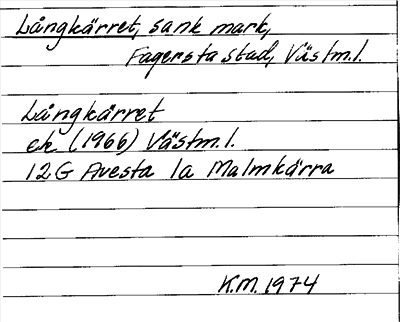 Långkärret, sank mark,
Fagersta stad, Västm.l.
Långkärret
ek (1966) Västm.l.
12G Avesta 1a Malmkärra
K.M. 1974